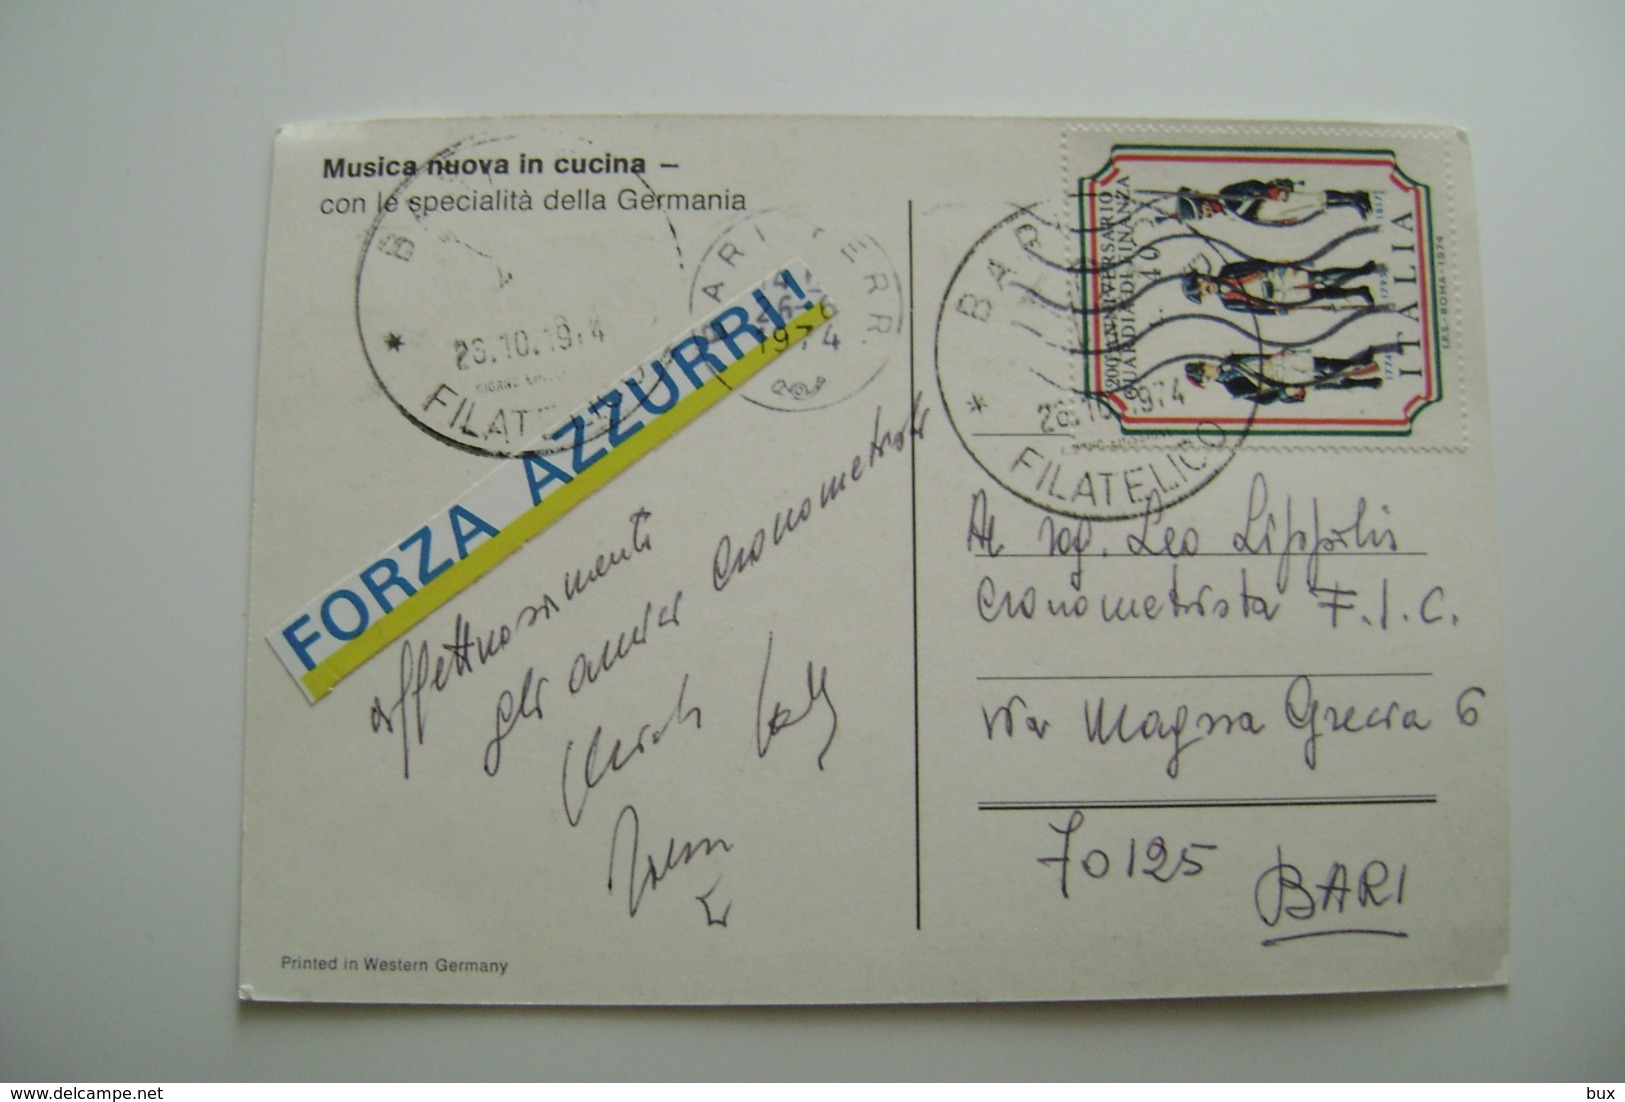 Musica nuova in cucina –
con le specialità della Germania
BARI
26.10.1974
FILATELICO
BARI FERR.
1974
FORZA AZZURRI!
affettuosamente
gli amici cronometristi
BARI
26.10.1974
FILATELICO
200° ANNIVERSARIO
GUARDIA DI FINANZA
L. 40
1774
1795
1817
ITALIA
I.P.S.-ROMA-1974
Al rag. Leo Lippolis
cronometrista F.I.C.
via Magna Grecia 6
70125
BARI
Printed in Western Germany
delcampe.net
bux